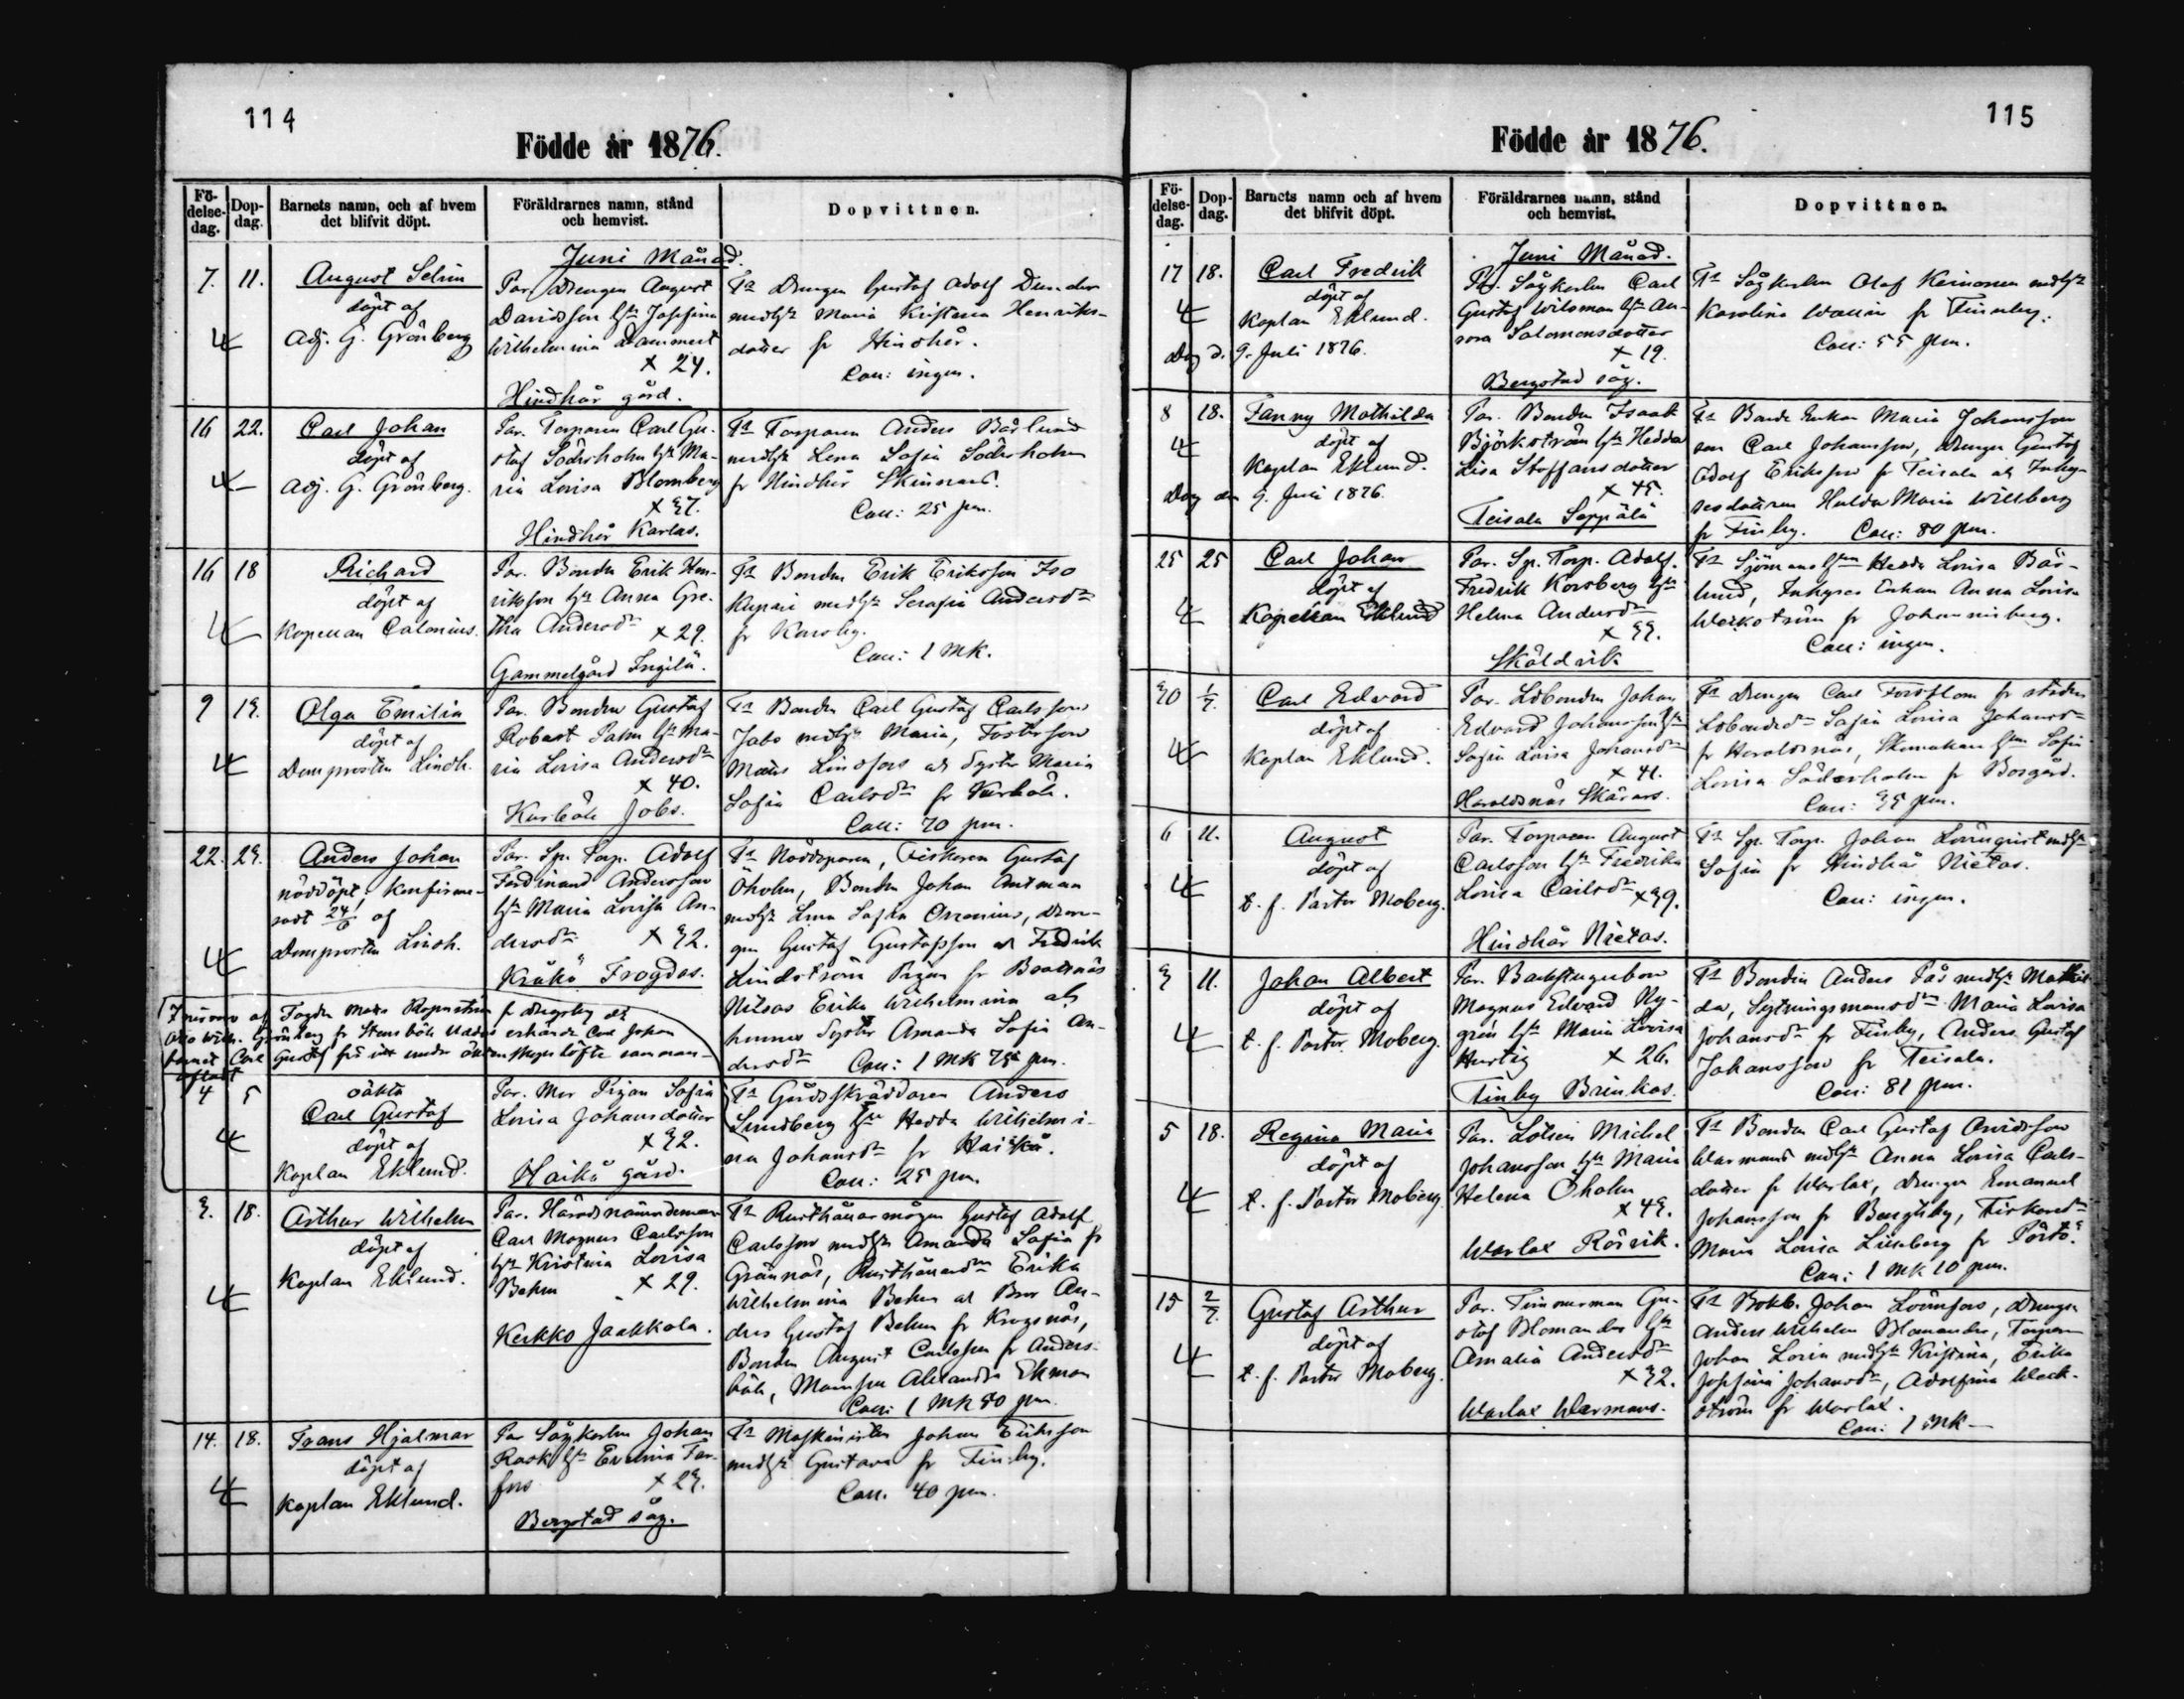 114
Födde år 1876.
Födelsedag.
Dopdag.
Barnets namn, och af hvem det blifvit döpt.
Föräldrarnes namn, stånd och hemvist.
Dopvittnen.
Juni Månad.
7. 11.
August Selim
döpt af
Adj. G. Grönberg
Par. Drengen August
Davidsson hu Josefina
Wilhelmina Dammert
x 24.
Hindhår gård.
Ts Drengen Gustaf Adolf Dunder
medhu Maria Kristina Henriks-
dotter fr Hindhår.
Coll: ingen.
16 22.
Carl Johan
döpt af
Adj. G. Grönberg.
Par. Torparen Carl Gu-
staf Söderholm hu Ma-
ria Lovisa Blomberg
x 37.
Hindhår Karlas.
Ts Torparen Anders Bärlund
medhu Lena Sofia Söderholm
fr Hindhår Skinnars.
Coll: 25 pm.
16 18
Richard
döpt af
Kapellan Calonius.
Par. Bonden Erik Hen-
riksson hu Anna Gre-
tha Andersdr x 29.
Gammelgård Ingilä.
Ts Bonden Erik Eriksson Iso
Kupari medhu Serafia Andersdr
fr Karsby.
Coll: 1 mk.
9 19.
Olga Emilia
döpt af
Domprosten Lindh.
Par. Bonden Gustaf
Robert Palm hu Ma-
ria Lovisa Andersdr
x 40.
Kurböle Jobs.
Ts Bonden Carl Gustaf Carlsson
Jabs medhu Maria, Fosterson
Matts Lindfors och Syster Maria
Sofia Carlsdr fr Kurböle.
Coll: 70 pm.
22. 29.
Anders Johan
nöddöpt, Konfirme-
radt 24/6 af
Domprosten Lindh.
Par. Sp. Torp. Adolf
Ferdinand Andersson
hu Maria Lovisa An-
dersdr x 32.
Kråkö Frogdas.
Ts Nöddoparen, Fiskaren Gustaf
Öholm, Bonden Johan Antman
medhu Lena Sofia Orrenius, Dren-
gen Gustaf Gustafsson och Fredrik
Lindström Pigan fr
Nilsas Erika Wilhelmina och
hennes Syster Amanda Sofia An-
dersdr Coll: 1 mk 75 pm.
I närvaro af Fogden Matts
Otto Wilh. Grönberg fr Stensböle erkände Carl Johan
barnet Carl Gustaf för sitt under äktenskapslöfte samman-
aflat
4 5
oäkta
Carl Gustaf
döpt af
Kaplan Eklund.
Par. Mor Pigan Sofia
Lovisa Johansdotter
x 32.
Haikå gård.
Ts Gårdsskräddaren Anders
Sundberg hu Hedda Wilhelmi-
na Johansdr fr Haikå.
Coll: 25 pm.
3. 18.
Arthur Wilhelm
döpt af
Kaplan Eklund.
Par. Häradsnämndeman
Carl Magnus Carlsson
hu Kristina Lovisa
Behm x 29.
Kerkko Jaakkola.
Ts Rusthållarmågen Gustaf Adolf
Carlsson medhu Amanda Sofia fr
Grännäs, Rusthållardr Erika
Wilhelmina Behm och Bror An-
ders Gustaf Behm fr Krogsnäs,
Bonden August Carlsson fr Anders-
böle, Mamsell Alexandra Ekman
Coll: 1 mk 50 pm.
14. 18.
Frans Hjalmar
döpt af
Kaplan Eklund.
Par Sågkarlen Johan
Rask hu Evelina For-
fors x 29.
Bergstad såg.
Ts Maskinisten Johan Eriksson
medhu Gustava fr Finby.
Coll. 40 pm.
115
Födde år 1876.
Födelsedag.
Dopdag.
Barnets namn och af hvem det blifvit döpt.
Föräldrarnes namn, stånd och hemvist.
Dopvittnen.
Juni Månad.
17 18.
Carl Fredrik
döpt af
Kaplan Eklund.
Dog d. 9. Juli 1876.
Par. Sågkarlen Carl
Gustaf Wilsman hu An-
nora Salomonsdotter
x 19.
Bergstad såg.
Ts Sågkarlen Olof Keinonen medhu
Karolina Wallin fr Finnby.
Coll: 55 pm.
8 18.
Fanny Mathilda
döpt af
Kaplan Eklund.
Dog den 9. Juli 1876.
Par. Bonden Isaak
Björkström hu Hedda
Lisa Staffansdotter
x 45.
Teisala Seppälä
Ts Bonde Enkan Maria Johansson
son Carl Johansson, Drengen Gustaf
Adolf Eriksson fr Teisala och Inhy-
sesdottren Hulda Maria Willberg
fr Finby. Coll: 80 pm.
25 25
Carl Johan
döpt af
Kapellan Eklund
Par. Sp. Torp. Adolf
Fredrik Korsberg hu
Helena Andersdr
x 33.
Sköldvik
Ts Sjömans hun Hedda Lovisa Bär-
lund, Inhyses Enkan Anna Lovisa
Werkström fr Johannisberg.
Coll: ingen.
30 1/7.
Carl Edvard
döpt af
Kaplan Eklund.
Par. Ldbonden Johan
Edvard Johansson hu
Sofia Lovisa Johansdr
x 41.
Haraldsnäs Skärars.
Ts Drengen Carl Forsblom fr staden
Ldbondedr Sofia Lovisa Johansdr
fr Haraldsnäs, Skomakare hun Sofia
Lovisa Söderholm fr Borgård.
Coll: 35 pm.
6 11.
August
döpt af
t. f. Pastor Moberg.
Par. Torparen August
Carlsson hu Fredrika
Lovisa Carlsdr x 39.
Hindhår Nietas.
Ts Sp. Torp. Johan Lönnqvist medhu
Sofia fr Hindhår Nietas.
Coll: ingen.
3 11.
Johan Albert
döpt af
t. f. Pastor Moberg.
Par. Backstugubon
Magnus Edvard Ny-
gren hu Maria Lovisa
Hurtig x 26.
Finby Brinkas.
Ts Bonden Anders Pås medhu Mathil-
da, Sexmansdr Maria Lovisa
Johansdr fr Finby, Anders Gustaf
Johansson fr Teisala.
Coll: 81 pm.
5 18.
Regina Maria
döpt af
t. f. Pastor Moberg
Par. Lotsen Michel
Johansson hu Maria
Helena Öholm
x 43.
Warlax Rörvik.
Ts Bonden Carl Gustaf Arvidsson
Warmans medhu Anna Lovisa Carls-
dotter fr Warlax, Drengen Emanuel
Johansson fr Bengtsby, Fiskaredr
Maria Lovisa Liljeberg fr Pörtö.
Coll: 1 mk 10 pm.
15 2/7.
Gustaf Arthur
döpt af
t. f. Pastor Moberg.
Par. Timmerman Gu-
staf Blomander hu
Amalia Andersdr
x 32.
Warlax Warmans.
Ts Bokb. Johan Lönnfors, Drengen
Anders Wilhelm Blomander, Torparen
Johan Lorin medhu Kristina, Erika
Josefina Johansdr, Adolfina Weck-
ström fr Warlax.
Coll: 1 mk —